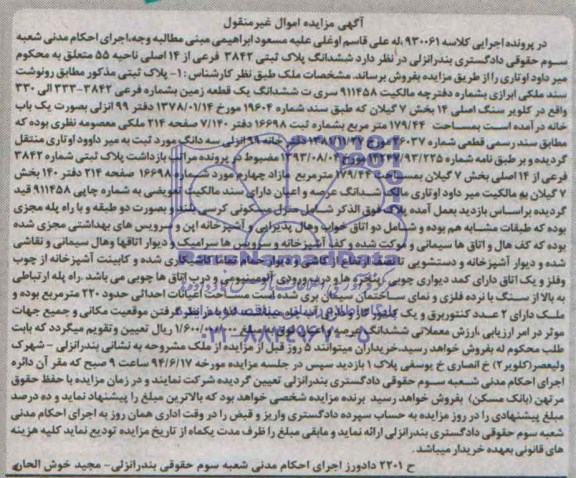 آگهی مزایده اموال غیرمنقول
در پرونده اجرایی کلاسه ۹۳۰۰۶۱ ،له علی قاسم اوغلی علیه مسعود ابراهیمی مبنی مطالبه وجه،اجرای احکام مدنی شعبه
سوم حقوقی دادگستری بندرانزلی در نظر دارد ششدانگ پلاک ثبتی ۳۸۴۲ فرعی از ۱۴ اصلی ناحیه ۵۵ متعلق به محکوم
میر داود اوتاری را از طریق مزایده بفروش برساند. مشخصات ملک طبق نظر کارشناس :۱- پلاک ثبتی مذکور مطابق رونوشت
سند ملکی ابرازی بشماره دفترچه مالکیت ۹۱۱۴۵۸ سری ت ششدانگ یک قطعه زمین بشماره فرعی ۳۸۴۲-۳۳۳ الی ۳۳۰
واقع در کلویر سنگ اصلی ۱۴ بخش ۷ گیلان که طبق سند شماره ۱۹۶۰۴ مورخ ۱۳۷۸/۰۱/۱۴ دفتر ۹۹ انزلی بصورت یک باب
خانه در آمده است بمساحت ۱۷۹/۴۴ متر مربع بشماره ثبت ۱۶۶۹۸ دفتر ۷/۱۴۰ صفحه ۲۱۴ ملکی معصومه نظری بوده که
مطابق سند رسمی قطعی شماره ۳۶۰۳۷ مورخ دفتر خانه ۹۹ انزلی سه دانگ مورد ثبت به میر داوود اوتاری منتقل
گردیده و بر طبق نامه شماره ۱۳۹۳/۰۸/۰۴ مضبوط در پرونده مراتب بازداشت پلاک ثبتی شماره ۳۸۴۲
فرعی از ۱۴ اصلی بخش ۷ گیلان بمساحت ۱۷۹/۴۴ مترمربع مازاد چهارم مورد شماره ۱۶۶۹۸ صفحه ۲۱۴ دفتر ۱۴۰ بخش
۷ گیلان به مالکیت میر داود اوتاری مالک ششدانگ عرصه و اعیان دارای سند مالکیت تعویضی به شماره چاپی ۹۱۱۴۵۸ قید
گردیده براساس بازدید بعمل آمده پلاک فوق الذکر شامل منزل مسکونی کرسی بلند و بصورت دو طبقه و با راه پله مجزی
بوده که طبقات مشابه هم بوده و شامل دو اتاق خواب وهال پذیرایی و آشپزخانه اپن و سرویس های بهداشتی مجزی شده
بوده که کف هال و اتاق ها سیمانی و موکت شده و کف آشپزخانه و سرویس ها سرامیک و دیوار اتاقها وهال سیمانی و نقاشی
شده و دیوار آشپزخانه و دستشویی تا ارتفاع از کاشی و دیوار حمام تماما کاشی کاری شده و کابینت آشپزخانه از چوب
وفلز و یک اتاق دارای کمد دیواری چوبی درب ورودی آلومینیومی و درب اتاق ها چوبی می باشد .راه پله ارتباطی
به بالا از سنگ با نرده فلزی و نمای ساختمان سیمان بری شده است مساحت اعیانات احداثی حدود ۲۲۰ مترمربع بوده و
ملک دارای ۲ عدد کنتوربرق و یک نظر گرفتن موقعیت مکانی و جمیع جهات
موثر در امر ارزیابی ،ارزش معاملاتی ششدانگ عرصه ۱/۶۰۰/۰۰۰/۰۰۰ ریال تعیین و تقویم میگردد که بابت
طلب محکوم له بفروش خواهد رسید.خریداران میتوانند ۵ روز قبل از مزایده از ملک مشروحه به نشانی بندرانزلی – شهرک
ولیعصر(کلویر۲) خ انصاری خ یوسفی پلاک ۱ بازدید سپس در جلسه مزایده مورخه ۹۴/۶/۱۷ ساعت ۹ صبح که مقر آن دائره
اجرای احکام مدنی شعبه سوم حقوقی دادگستری بندرانزلی تعیین گردیده شرکت نمایند و در زمان مزایده با حفظ حقوق
مرتهن (بانک مسکن) بفروش خواهد رسید برنده مزایده شخصی خواهد بود که بالاترین مبلغ را پیشنهاد نماید و ده درصد
مبلغ پیشنهادی را در روز مزایده به حساب سپرده دادگستری واریز و قبض را در وقت اداری همان روز به اجرای احکام مدنی
شعبه سوم حقوقی دادگستری بندرانزلی ارائه نماید و مابقی مبلغ را ظرف مدت یکماه از تاریخ مزایده تودیع نماید کلیه هزینه
های قانونی بعهده خریدار میباشد.
ح ۲۲۰۱ دادورز اجرای احکام مدنی شعبه سوم حقوقی بندرانزلی- مجید خوش الحان
۰۲۱-۸۸۳۴۹۶۷۰-۵